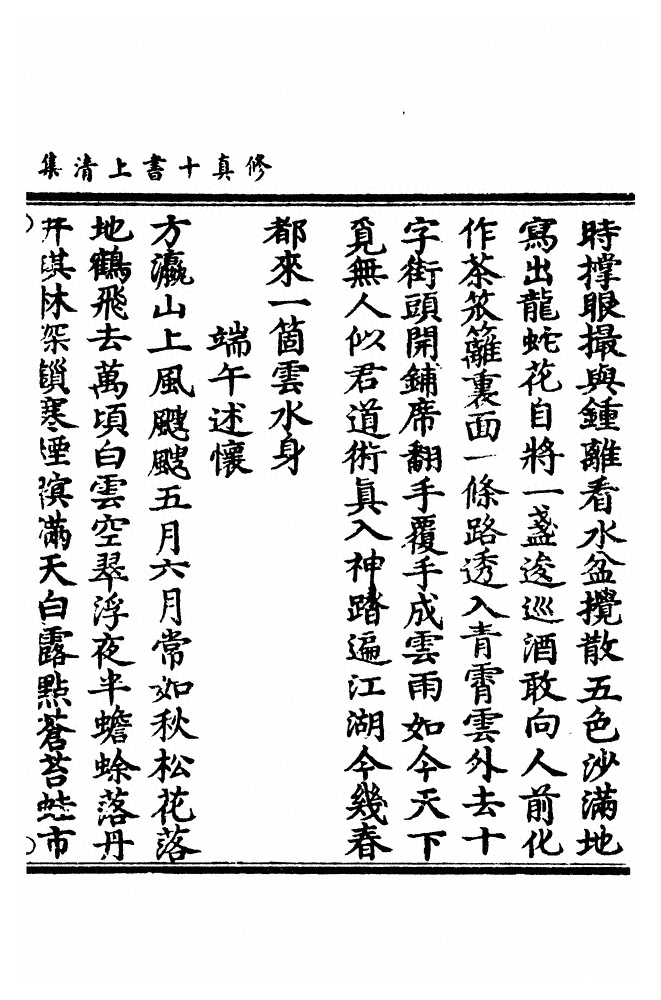 修真十書上清集
時撑眼撮與鍾離看水盆攪散五色沙滿地
寫出龍蛇花自將一盞逡巡酒敢向人前化
作茶笊籬裏面一條路透入青霄雲外去十
字街頭開鋪席翻手覆手成雲雨如今天下
覓無人似君道術眞入神踏遍江湖今幾春
都來一箇雲水身
端午述懷
方瀛山上風颼颼五月六月常如秋松花落
地鶴飛去萬頃白雲空翠浮夜半蟾蜍落丹
井琪林深鎖寒煙滿天白露點蒼苔蛙市